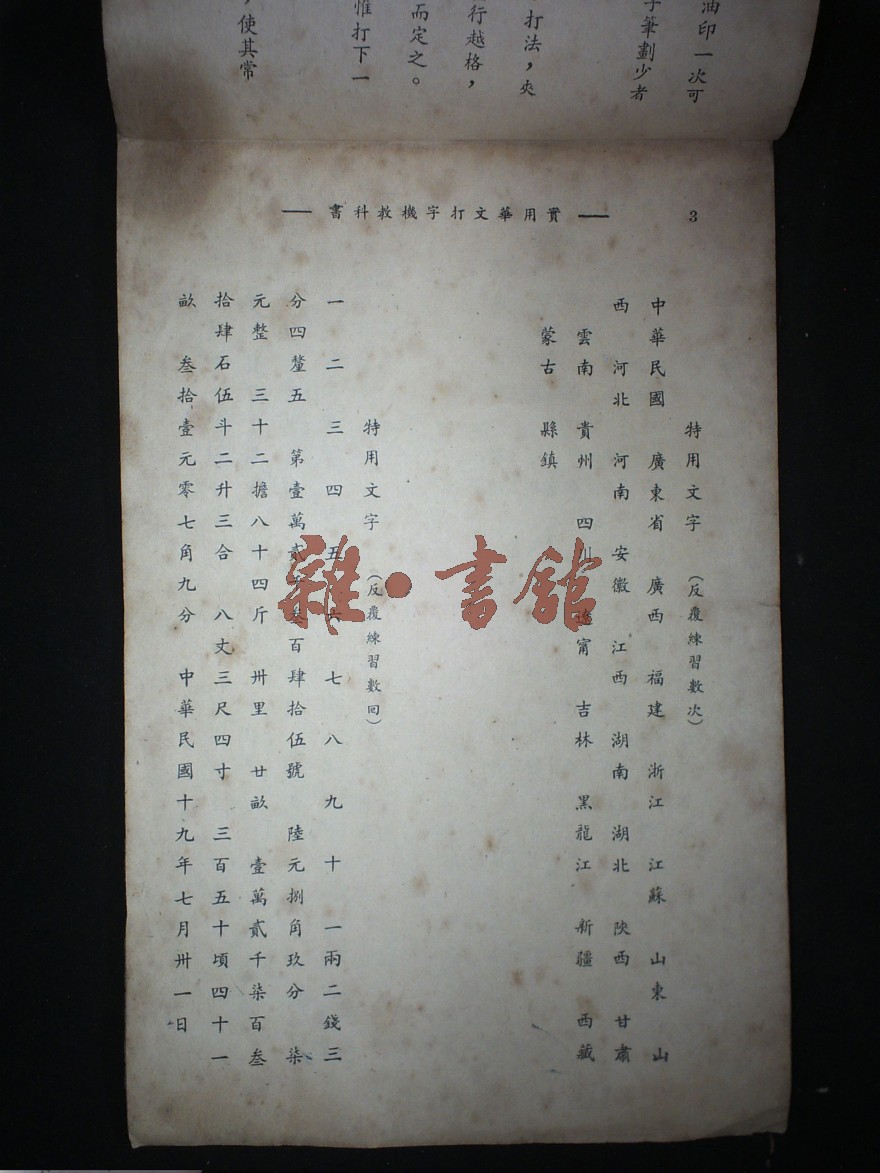 油印一次可
字筆劃少者
打法，夾
行越格，
而定之。
惟打下一
，使其常
3
實用華文打字機教科書
特用文字 （反覆練習數次）
中華民國 廣東省 廣西 福建 浙江 江蘇 山東 山
西 河北 河南 安徽 江西 湖南 湖北 陝西 甘肅
雲南 貴州 四川 遼甯 吉林 黑龍江 新疆 西藏
蒙古 縣鎮
特用文字 （反覆練習數回）
一 二 三 四 五 六 七 八 九 十 一兩二錢三
分四釐五 第壹萬貳千叁百肆拾伍號 陸元捌角玖分 柒
元整 三十二擔八十四斤 卅里 廿畝 壹萬貳千柒百叁
拾肆石伍斗二升三合 八丈三尺四寸 三百五十頃四十一
畝 叁拾壹元零七角九分 中華民國十九年七月卅一日
雜·書館